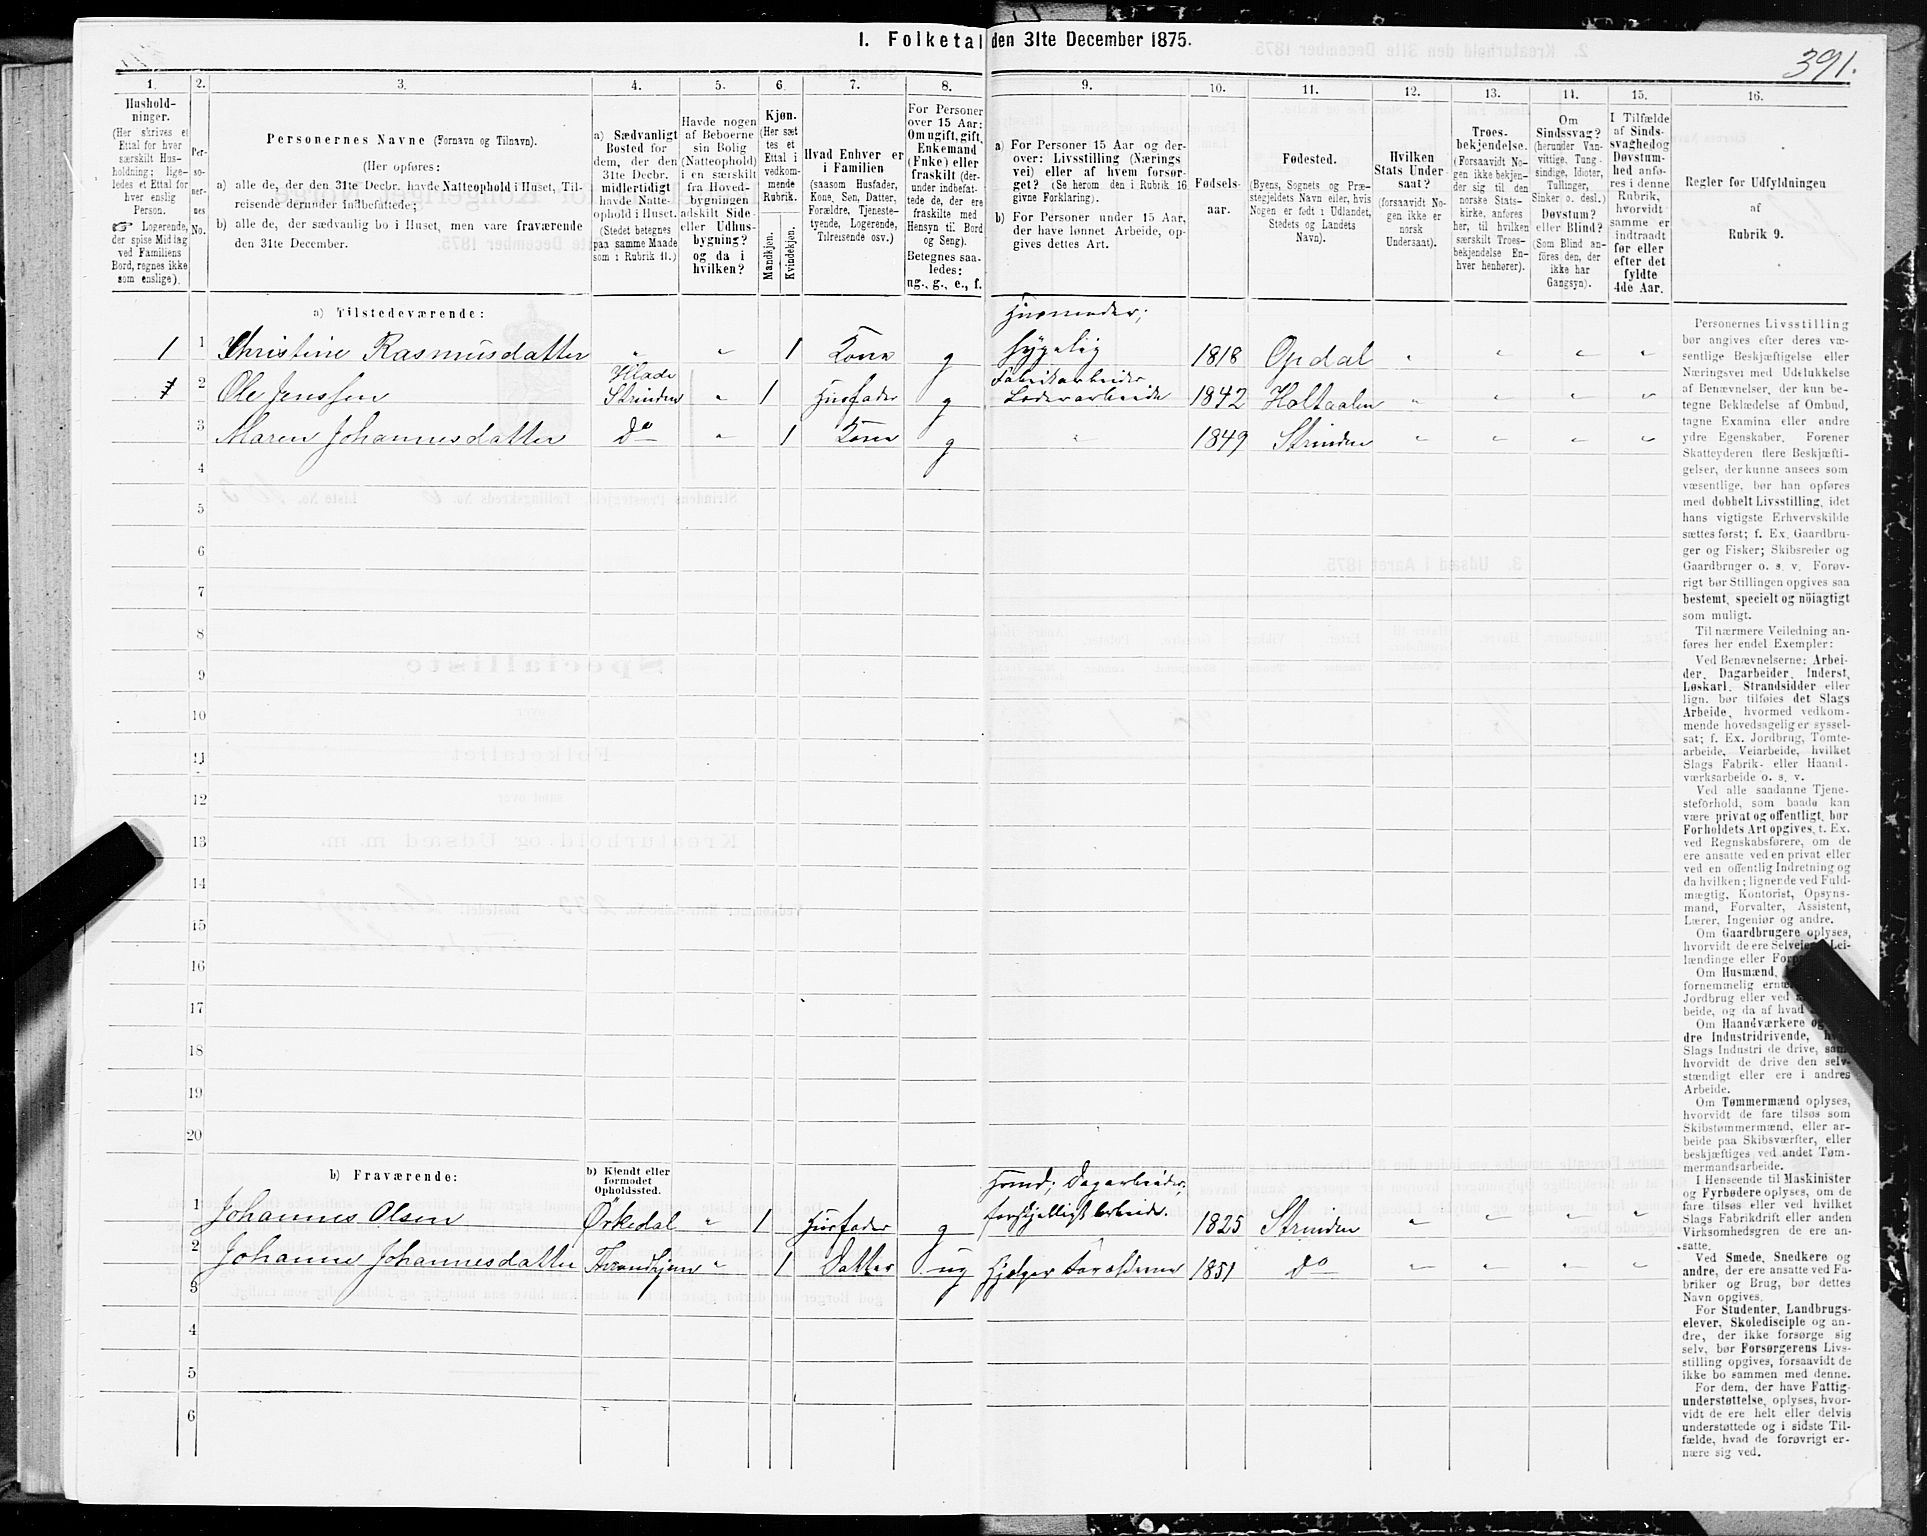 1. Folketal den 31te December 1875.
391.
1.
2.
3.
4.
5.
6.
7.
8.
9.
10.
11.
12.
13.
14.
15.
16.
Hushold-
ninger.
(Her skrives et
Ettal for hver
særskilt Hus-
holdning; lige-
ledes et Ettal for
hver enslig
Person.
☞ Logerende,
der spise Middag
ved Familiens
Bord, regnes ikke
som enslige).
Per-
soner-
nes
No.
Personernes Navne (Fornavn og Tilnavn).
(Her opføres:
a) alle de, der den 31te Decbr. havde Natteophold i Huset, Til-
reisende derunder indbefattede;
b) alle de, der sædvanlig bo i Huset, men vare fraværende
den 31te December.
a) Sædvanligt
Bosted for
dem, der den
31te Decbr.
midlertidigt
havde Natte-
ophold i Huset.
(Stedet betegnes
paa samme Maade
som i Rubrik 11.)
Havde nogen
af Beboerne
sin Bolig
(Natteophold)
i en særskilt
fra Hoved-
bygningen
adskilt Side-
eller Udhus-
bygning?
og da i
hvilken?
Kjøn.
(Her sæt
tes et
Ettal i
vedkom-
mende
Rubrik.
Mandkjøn.
Kvindekjøn.
Hvad Enhver er
i Familien
(saasom Husfader,
Kone, Søn, Datter,
Forældre, Tjeneste-
tyende, Logerende,
Tilreisende osv.)
For Personer
over 15 Aar:
Om ugift, gift,
Enkemand
(Enke) eller
fraskilt (der-
under indbefat-
tede de, der ere
fraskilte med
Hensyn til Bord
og Seng).
Betegnes saa-
ledes:
ug., g., e., f.
a) For Personer 15 Aar og der-
over: Livsstilling (Nærings
vei) eller af hvem forsør-
get? (Se herom den i Rubrik 16
givne Forklaring).
b) For Personer under 15 Aar,
der have lønnet Arbeide, op-
gives dettes Art.
Fødsels-
aar.
Fødested.
(Byens, Sognets og Præ-
stegjeldets Navn eller, hvis
Nogen er født i Udlandet,
Stedets og Landets
Navn).
Hvilken
Stats Under
saat?
(forsaavidt No-
gen ikke er
norsk
Undersaat).
Troes-
bekjendelse.
(Forsaavidt No-
gen ikke bekjen-
der sig til den
norske Stats-
kirke, anføres
her, til hvilken
særskilt Troes-
bekjendelse En-
hver henhører).
Om
Sindssvag?
(herunder Van-
vittige, Tung-
sindige, Idioter,
Tullinger,
Sinker o. desl.)
Døvstum?
eller Blind?
(Som Blind an-
føres den, der
ikke har
Gangsyn).
I Tilfælde
af Sinds-
svaghed og
Døvstum-
hed anfø-
res i denne
Rubrik,
hvorvidt
samme er
indtraadt
før eller
efter det
fyldte
4de Aar.
Regler for Udfyldningen
af
Rubrik 9.
a) Tilstedeværende:
Husmoder;
1 1 Christine Rasmusdatter " " 1 Kone g sygelig 1818 Opdal " " " "
Hlade Fabrikarbeider
2 Ole Jenssen Strinden " 1 Husfader g Lodsarbeide 1842 Holtaalen " " " "
3 Maren Johannesdatter Do " 1 Kone g " 1849 Strinden " " " "
4
5
6
7
8
9
10
11
12
13
14
15
16
17
18
19
20
b) Fraværende:
b) Kjendt eller
formodet
Opholdssted.
Hmd; Dagarbeider;
1 Johannes Olsen Ørkedal " 1 Husfader g forskjelligt Arbeide. 1825 Strinden " " " "
2 Johanne Johannesdatter Throndhjem " 1 Datter ug Hjelper Forældrene 1851 Do " " " "
3
4
5
6
Personernes Livsstilling
bør angives efter deres væ-
sentlige Beskjæftigelse eller
Næringsvei med Udelukkelse
af Benævnelser, der kun be-
tegne Beklædelse af Ombud,
tagne Examina eller andre
ydre Egenskaber. Forener
Skatteyderen flere Beskjæfti-
gelser, der kunne ansees som
væsentlige, bør han opføres
med dobbelt Livsstilling, idet
hans vigtigste Erhvervskilde
sættes først; f. Ex. Gaardbru-
ger og Fisker; Skibsreder og
Gaardbruger o. s. v. Forøv-
rigt bør Stillingen opgives saa
bestemt, specielt og nöiagtigt
som muligt.
Til nærmere Veiledning an-
føres her endel Exempler:
Ved Benævnelserne: Arbei-
der, Dagarbeider, Inderst,
Løskarl, Strandsidder eller
lign. bør tilføies det Slags
Arbeide, hvormed vedkom-
mende hovedsagelig er syssel-
sat; f. Ex. Jordbrug, Tomte-
arbeide, Veiarbeide, hvilket
Slags Fabrik- eller Haand-
værksarbeide o. s. v.
Ved alle saadanne Tjene-
steforhold, som baade kan
være privat og offentligt, bør
Forholdets Art opgives, t. Ex.
ved Regnskabsførere, om de
ere ansatte ved en privat eller
ved en offentlig Indretning og
da hvilken; lignende ved Fuld-
mægtig, Kontorist, Opsyns-
mand, Forvalter, Assistent,
Lærer, Ingeniør og andre.
Om Gaardbrugere oplyses,
hvorvidt de ere Selveiere, Lei-
lændinge eller
Om Husmænd,
fornemmelig
Jordbrug eller ved
beide, og da af hvad
Om Haandværkere
dre Industridrivende,
Slags Industri de drive, sam
hvorvidt de drive den selv-
stændigt eller ere i andres
Arbeide.
Om Tømmermænd oplyses,
hvorvidt de fare tilsøs som
Skibstømmermænd, eller ar-
beide paa Skibsværfter, eller
beskjæftiges ved andet Tøm-
mermandsarbeide.
I Henseende til Maskinister
og Fyrbødere oplyses, om de
fare tilsøs eller ved hvilket
Slags Fabrikdrift eller anden
Virksomhedsgren de ere an-
satte.
Ved Smede, Snedkere og
andre, der ere ansatte ved Fa-
briker og Brug, bør dettes
Navn opgives.
For Studenter, Landbrugs-
elever, Skoledisciple og an-
dre, der ikke forsørge sig
selv, bør Forsørgerens Livs-
stilling opgives, forsaavidt de
ikke bo sammen med denne.
For dem, der have Fattig-
understøttelse, oplyses, hvor-
vidt de ere helt eller delvis
understøttede og i sidste Til-
fælde, hvad de forøvrigt er-
nære sig ved.